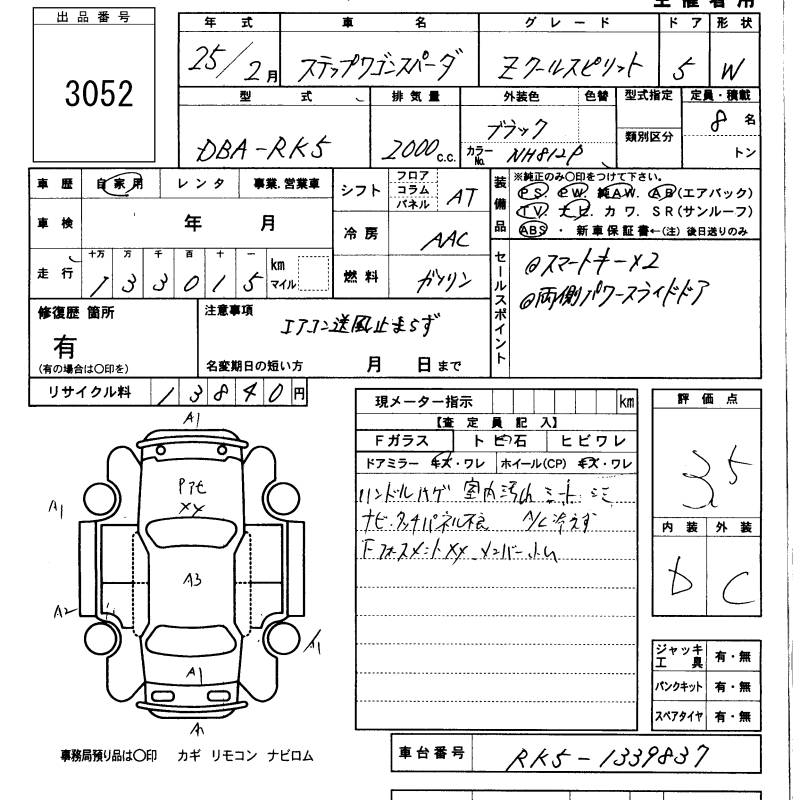 出品番号
3052
年式 車名 グレード ドア 形状
25/2月 ステップワゴンスパーダ Zクールスピリット 5 W
型式 排気量 外装色 色替 型式指定 定員・積載
DBA-RK5 2000c.c. ブラック 類別区分 8名
カラーNo. NH812P トン
車歴 自家用 レンタ 事業.営業車
車検 年 月
走行 十万 万 千 百 十 一
1 3 3 0 1 5 km マイル
シフト フロア コラム パネル AT
冷房 AAC
燃料 ガソリン
装備品
※純正のみ〇印をつけて下さい。
PS PW 純AW. AB(エアバック)
TV. ナビ. カワ. SR(サンルーフ)
ABS ・ 新車保証書←(注) 後日送りのみ
セールスポイント
@スマートキー×2
@両側パワースライドドア
修復歴 箇所
有
(有の場合は〇印を)
注意事項
エアコン送風止まらず
名変期日の短い方 月 日まで
リサイクル料 13840円
現メーター指示 km
【査定員記入】
Fガラス トビ石 ヒビワレ
ドアミラー キズ・ワレ ホイール(CP) キズ・ワレ
ハンドルハゲ 室内汚れ シート シミ
ナビ・タッチパネル不良 A/C冷えず
評価点
3.5
内装 外装
D C
ジャッキ工具 有・無
パンクキット 有・無
スペアタイヤ 有・無
A1
XX
A1
A3
A2
A1
A1
事務局預り品は〇印 カギ リモコン ナビロム
車台番号 RK5-1339837